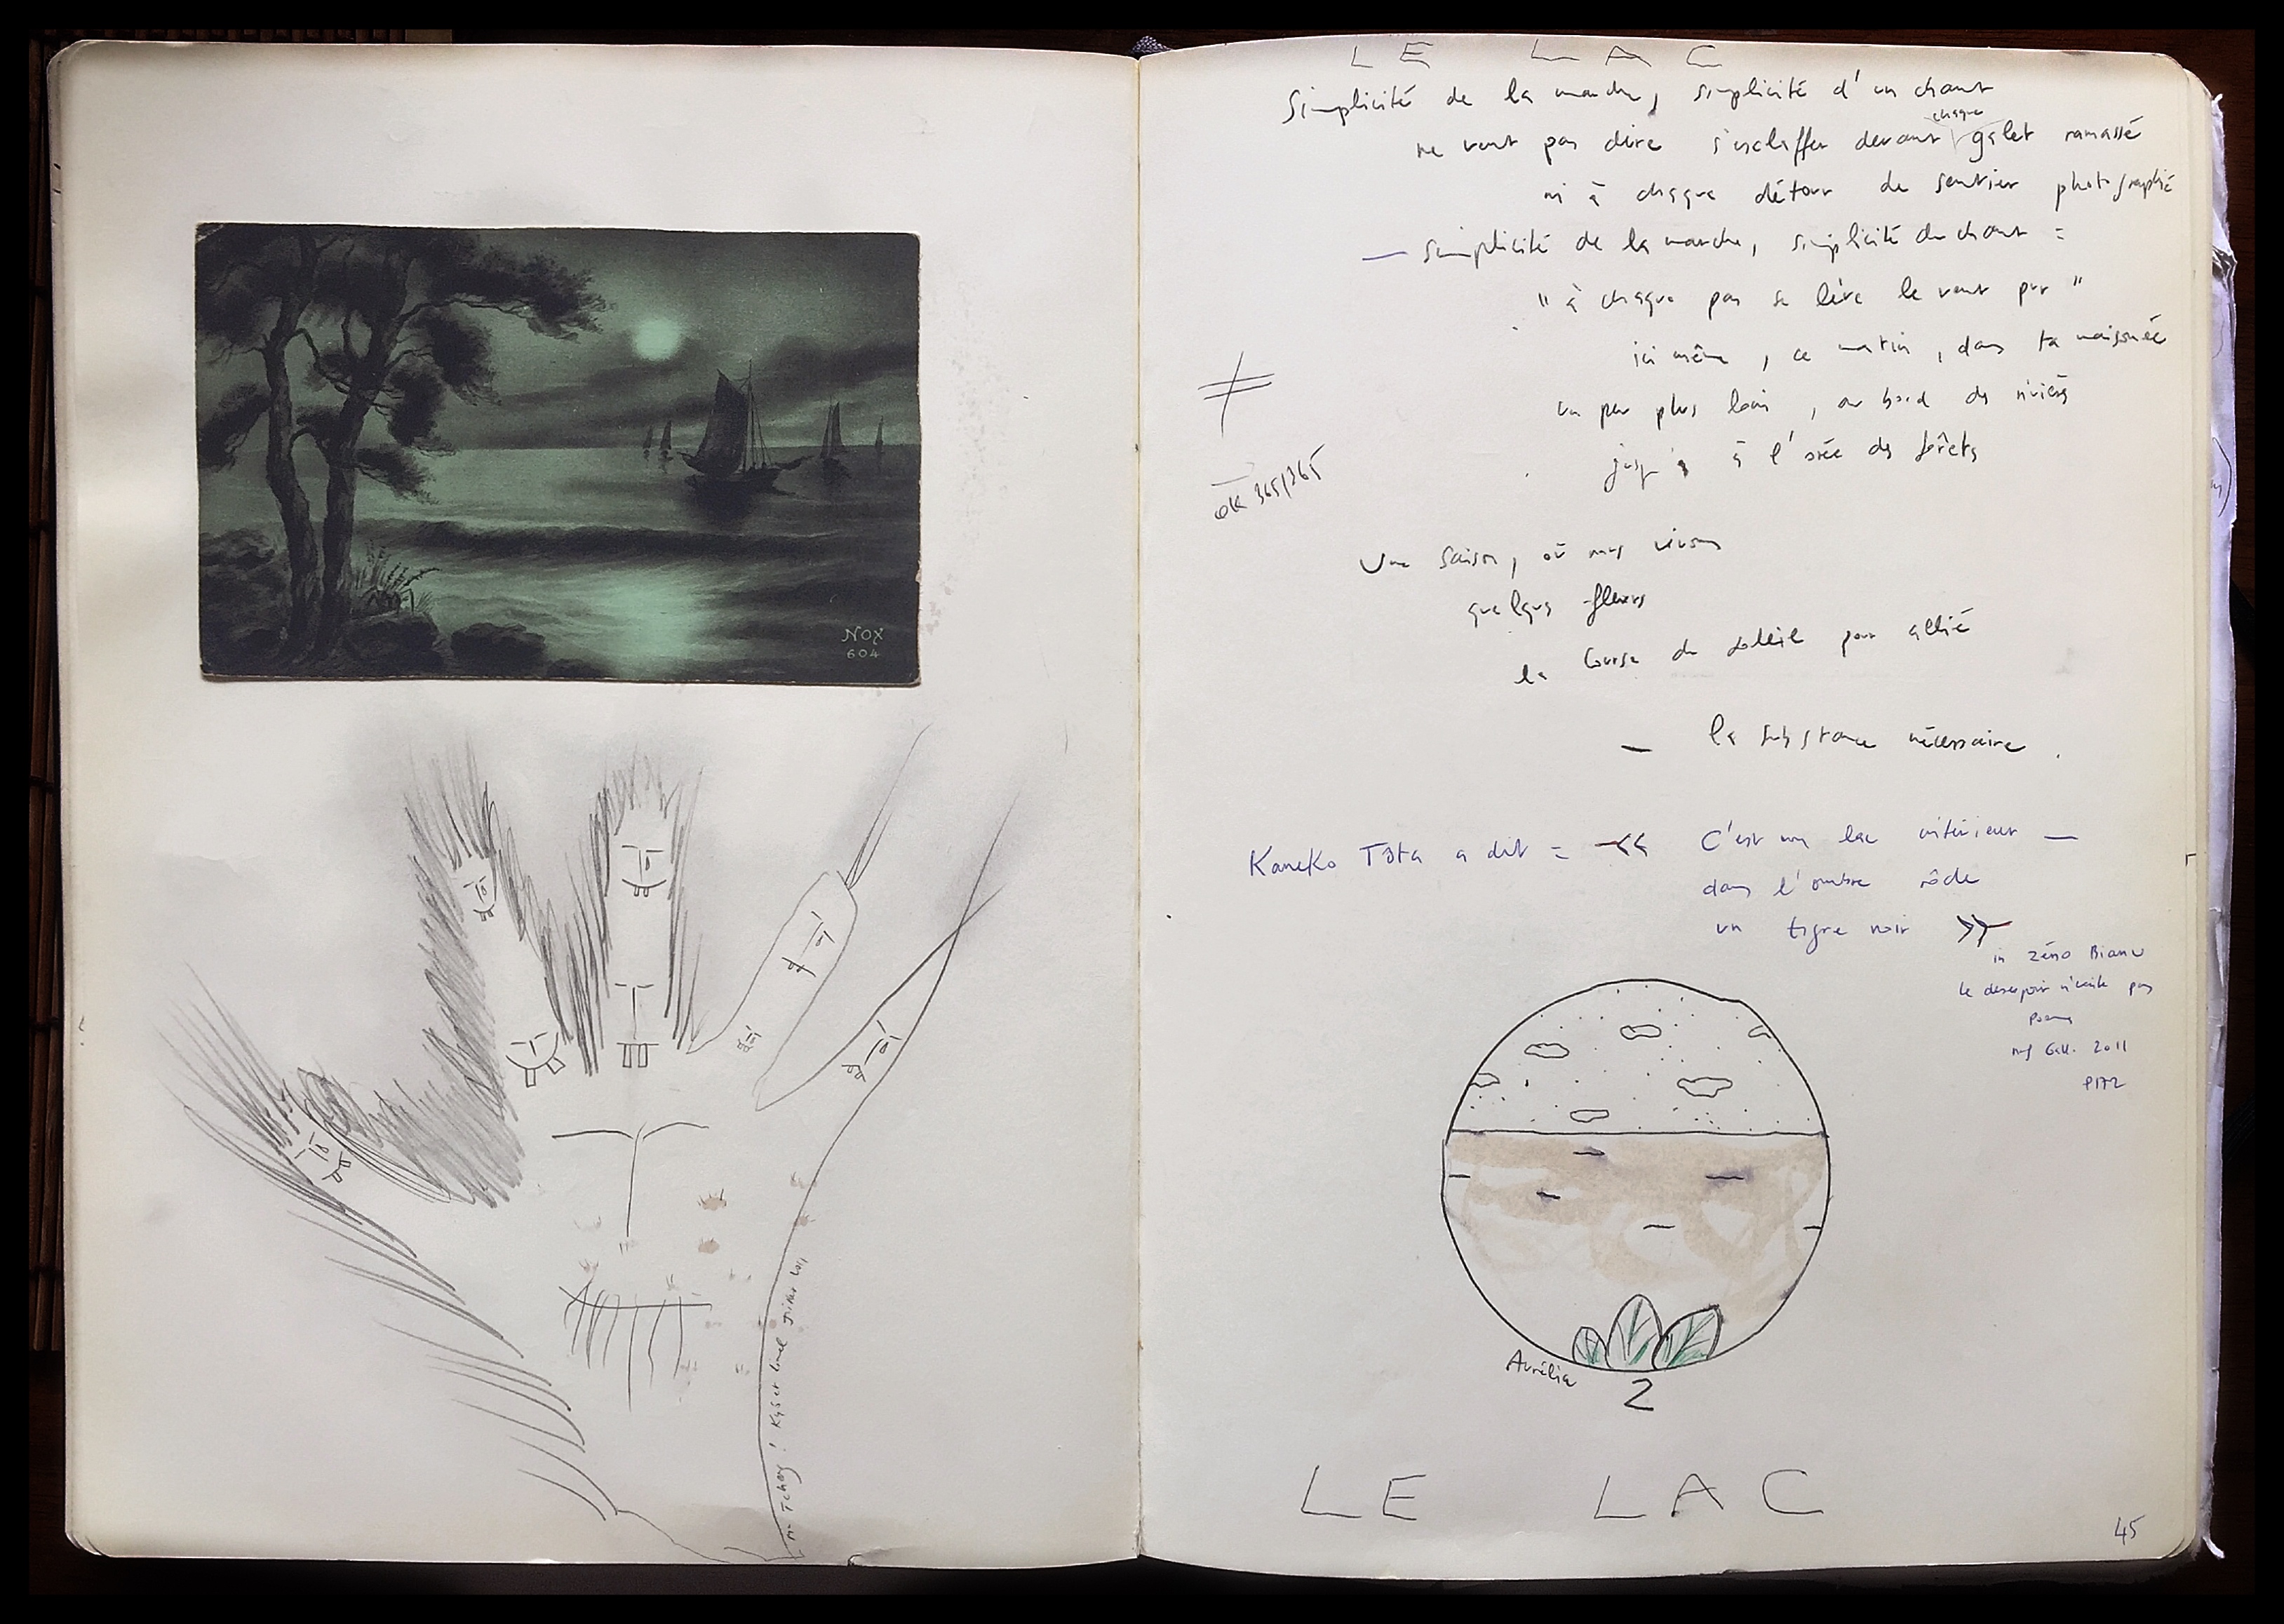 NOX
604
LE LAC
Simplicité de la marche, simplicité d'un chant
chaque
ne veut pas dire s'esclaffer devant galet ramassé
ni à chaque détour de sentier photographié
— simplicité de la marche, simplicité du chant =
" à chaque pas se lève le vent pur "
ici même, ce matin, dans ta maisonnée
un peu plus loin, au bord des rivières
jusqu'à à l'orée des forêts
≠
OK 365/365
Une saison, où nous vivons
quelques fleurs
la course du soleil pour allié
— la substance nécessaire.
Kaneko Tôta a dit = « C'est un lac intérieur —
dans l'ombre rôde
un tigre noir »
in Zéno Bianu
le désespoir n'existe pas
Poèmes
nrf Gall. 2011
P172
Aurélia
2
LE LAC
45